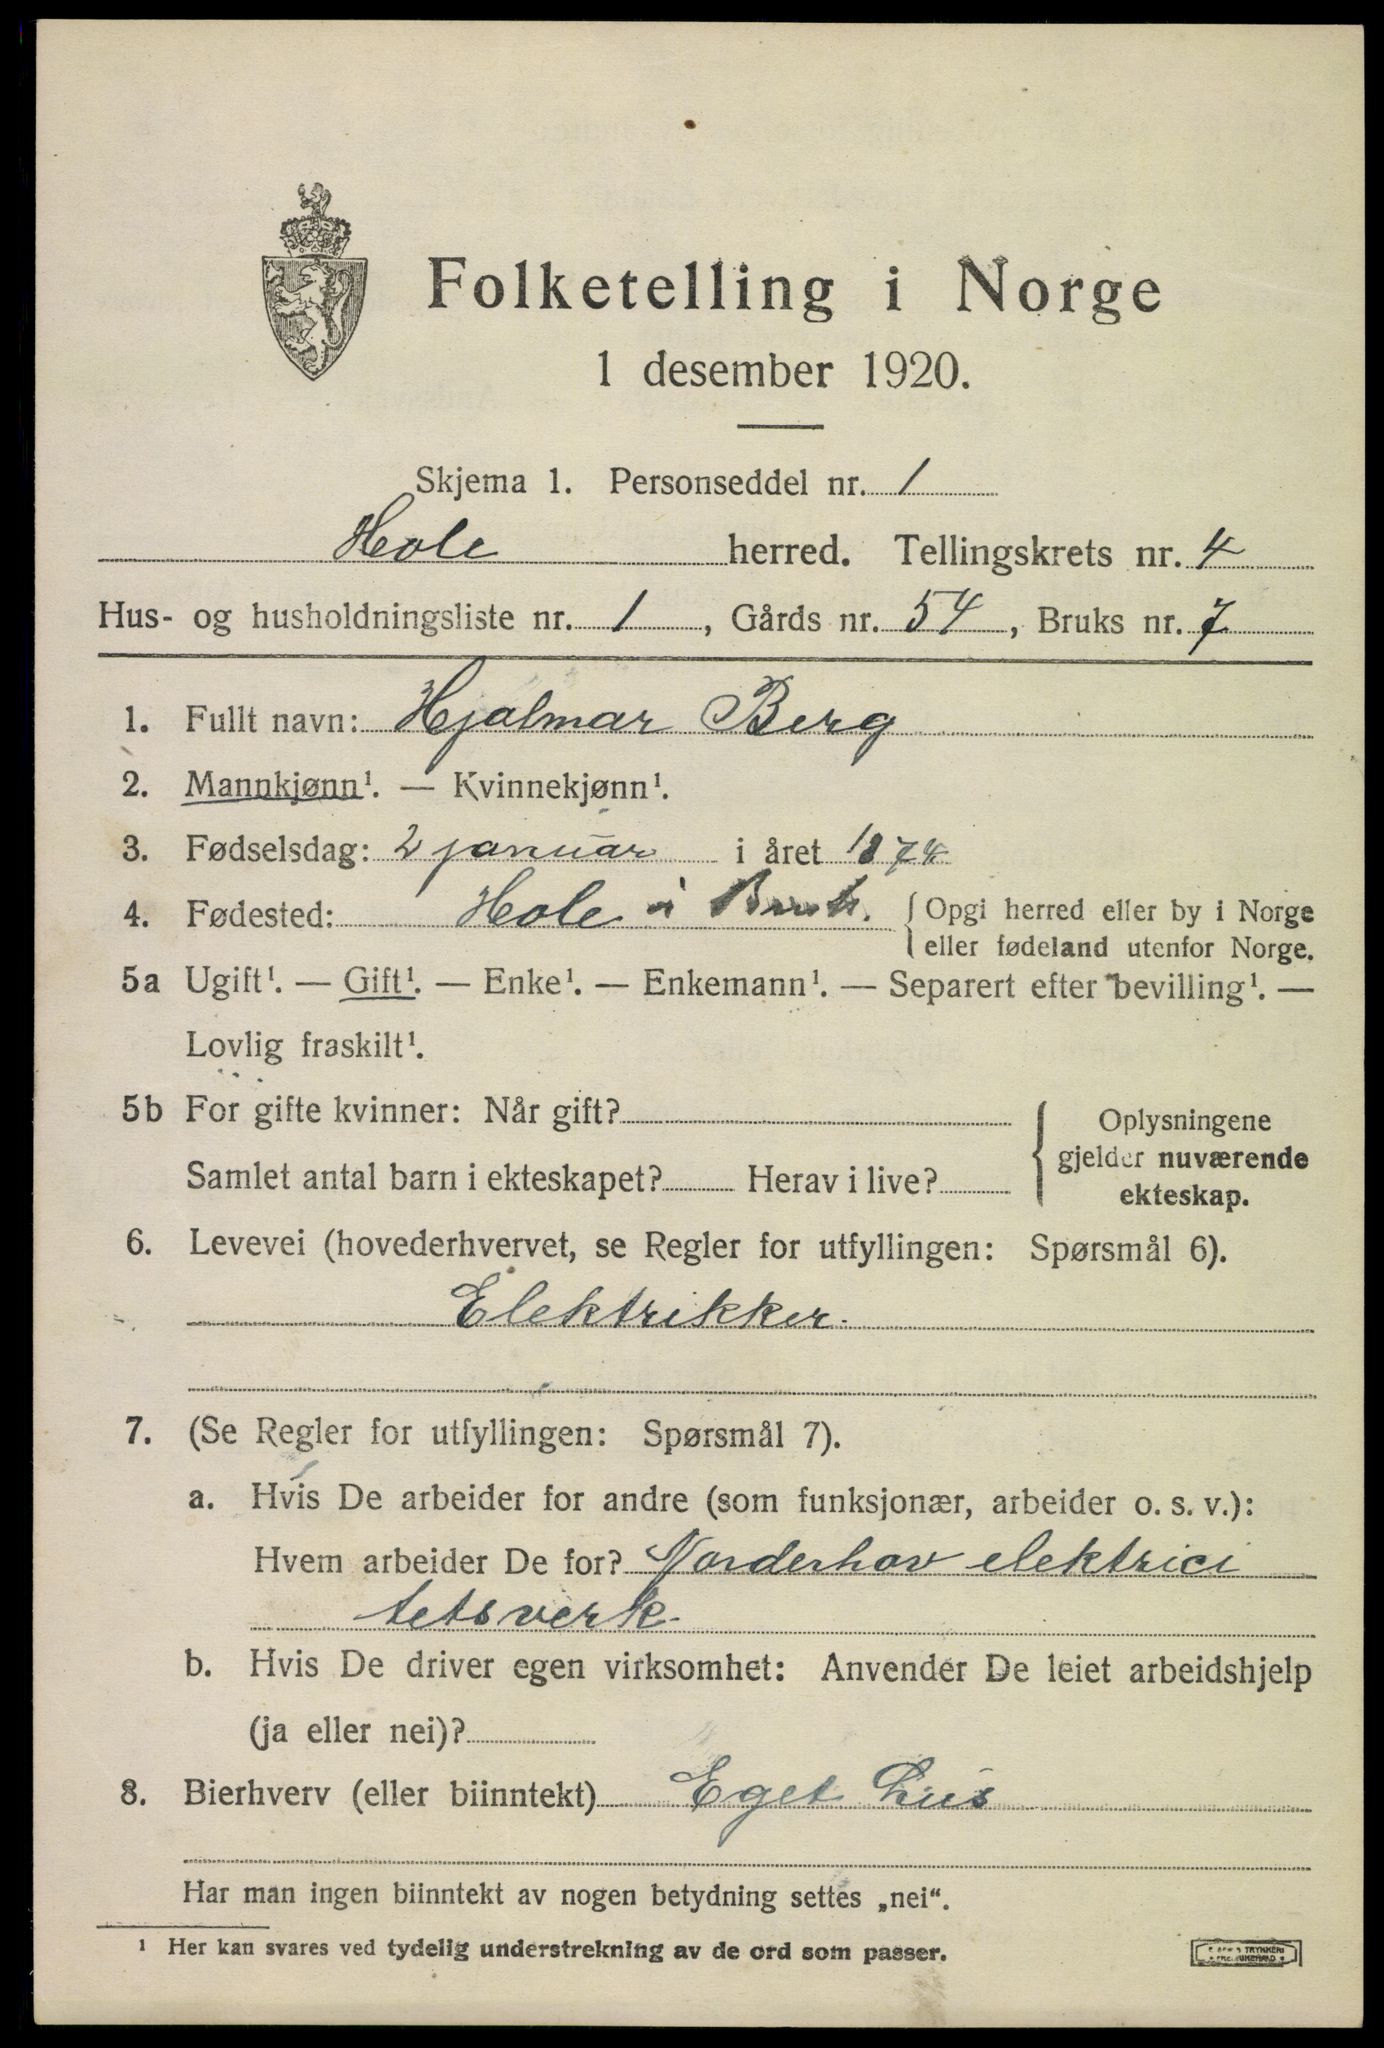 Folketelling i Norge
1 desember 1920.
Skjema 1. Personseddel nr. 1
Hole herred. Tellingskrets nr. 4
Hus- og husholdningsliste nr. 1, Gårds nr. 54, Bruks nr. 7
1. Fullt navn: Hjalmar Berg
2. Mannkjønn¹. — Kvinnekjønn¹.
3. Fødselsdag: 2 januar i året 1874
4. Fødested: Hole i Busk. Opgi herred eller by i Norge
eller fødeland utenfor Norge.
5a Ugift¹. — Gift¹. — Enke¹. — Enkemann¹. — Separert efter bevilling¹. —
Lovlig fraskilt¹.
5b For gifte kvinner: Når gift?
Samlet antal barn i ekteskapet? Herav i live?
Oplysningene
gjelder nuværende
ekteskap.
6. Levevei (hovederhvervet, se Regler for utfyllingen: Spørsmål 6).
Elektrikker.
7. (Se Regler for utfyllingen: Spørsmål 7).
a. Hvis De arbeider for andre (som funksjonær, arbeider o. s. v.):
Hvem arbeider De for? Norderhov elektrici
tetsverk.
b. Hvis De driver egen virksomhet: Anvender De leiet arbeidshjelp
(ja eller nei)?
8. Bierhverv (eller biinntekt) Eget hus
Har man ingen biinntekt av nogen betydning settes „nei“.
¹ Her kan svares ved tydelig understrekning av de ord som passer.